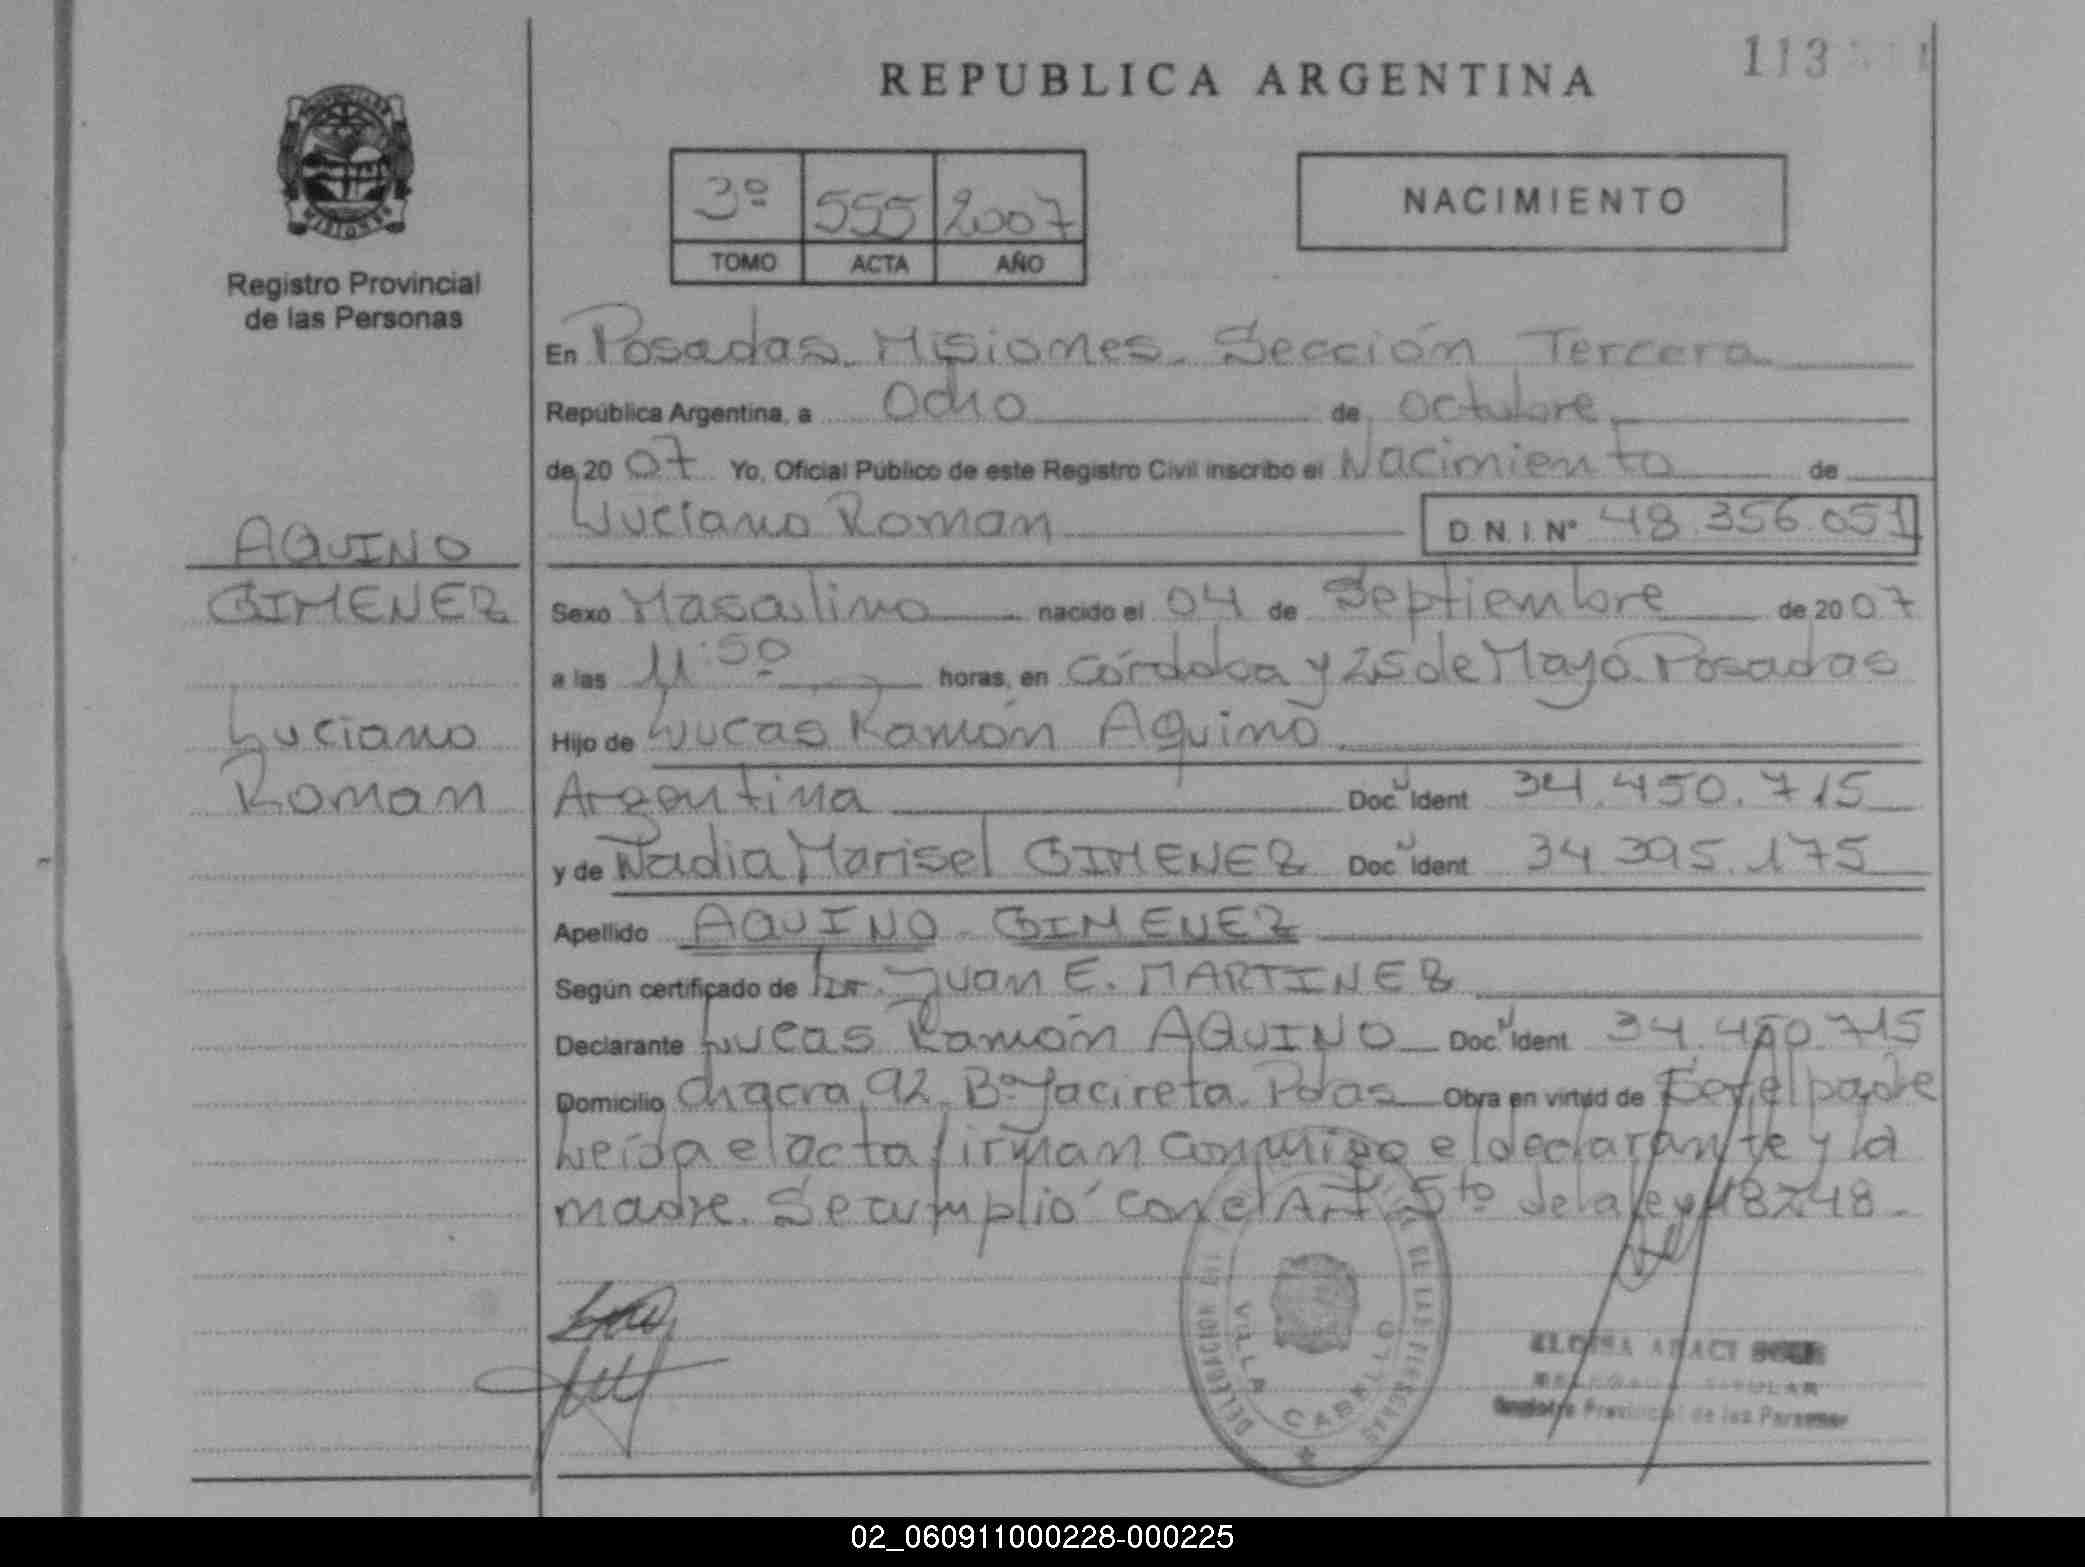 REPUBLICA ARGENTINA
113
PROVINCIA DE
MISIONES
Registro Provincial
de las Personas
3º 555 2007
TOMO ACTA AÑO
NACIMIENTO
En Posadas. Misiones. Sección Tercera
República Argentina, a Ocho de Octubre
de 2007 Yo, Oficial Público de este Registro Civil inscribo el Nacimiento de
Luciano Roman D.N.I. Nº 48.356.051
AQUINO
GIMENEZ
Luciano
Roman
Sexo Masculino nacido el 04 de Septiembre de 2007
a las 11:50 horas, en Córdoba y 25 de Mayo. Posadas
Hijo de Lucas Ramón Aquino
Argentina Doc. Ident 34.450.715
y de Nadia Marisel GIMENEZ Doc. Ident 34.395.175
Apellido AQUINO - GIMENEZ
Según certificado de Dr. Juan E. MARTINEZ
Declarante Lucas Ramón AQUINO Doc. Ident 34.450.715
Domicilio Chacra 92. Bº Yacireta. Pdas Obra en virtud de Ser el padre
Leída el acta firman conmigo el declarante y la
madre. Se cumplió con el Art 5to de la ley 18248.
VILLA CABELLO
DE LAS PERSONAS
DELEGACION
Registro Provincial de las Personas
02_060911000228-000225